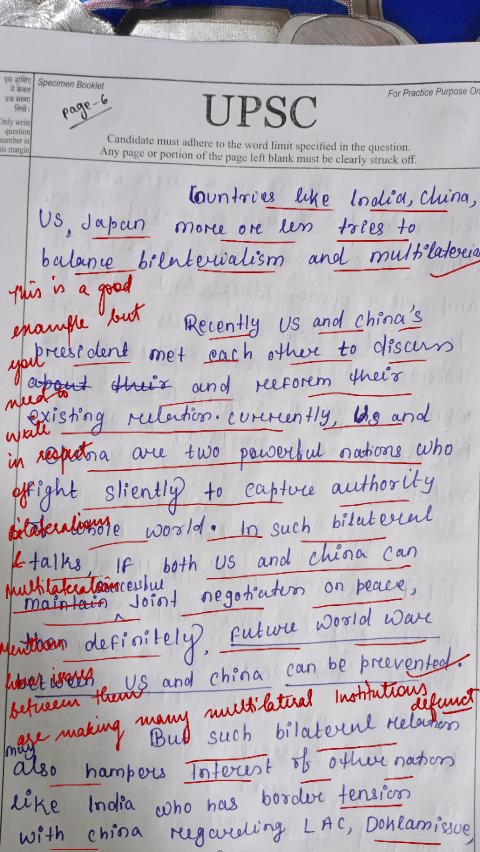 इस हाशिए
में केवल
प्रश्न संख्या
लिखें।
Only write
question
number in
this margin
Specimen Booklet
For Practice Purpose On
page-6
UPSC
Candidate must adhere to the word limit specified in the question.
Any page or portion of the page left blank must be clearly struck off.
Countries like India, China,
US, Japan more ore less tries to
balance bilaterialism and multilateria
This is a good
example but
you
need to
write
in respect
of
bilateralism
&
multilateralism
Mention
how issues
between them
are making many multilatural Institutions defunct
Recently US and China's
president met each other to discuss
about their and reeform their
existing relation. currently, US and
China are two powerful nations who
fight sliently to capture authority
whole world. In such bilateral
talks, If both US and china can
maintain successful Joint negotiation on peace,
than definitely, future World Ware
between US and china can be prevented.
But such bilaternl relation
may
also hampers Interest of other nation
like India who has border tension
with china regarding LAC, Doklamissue,